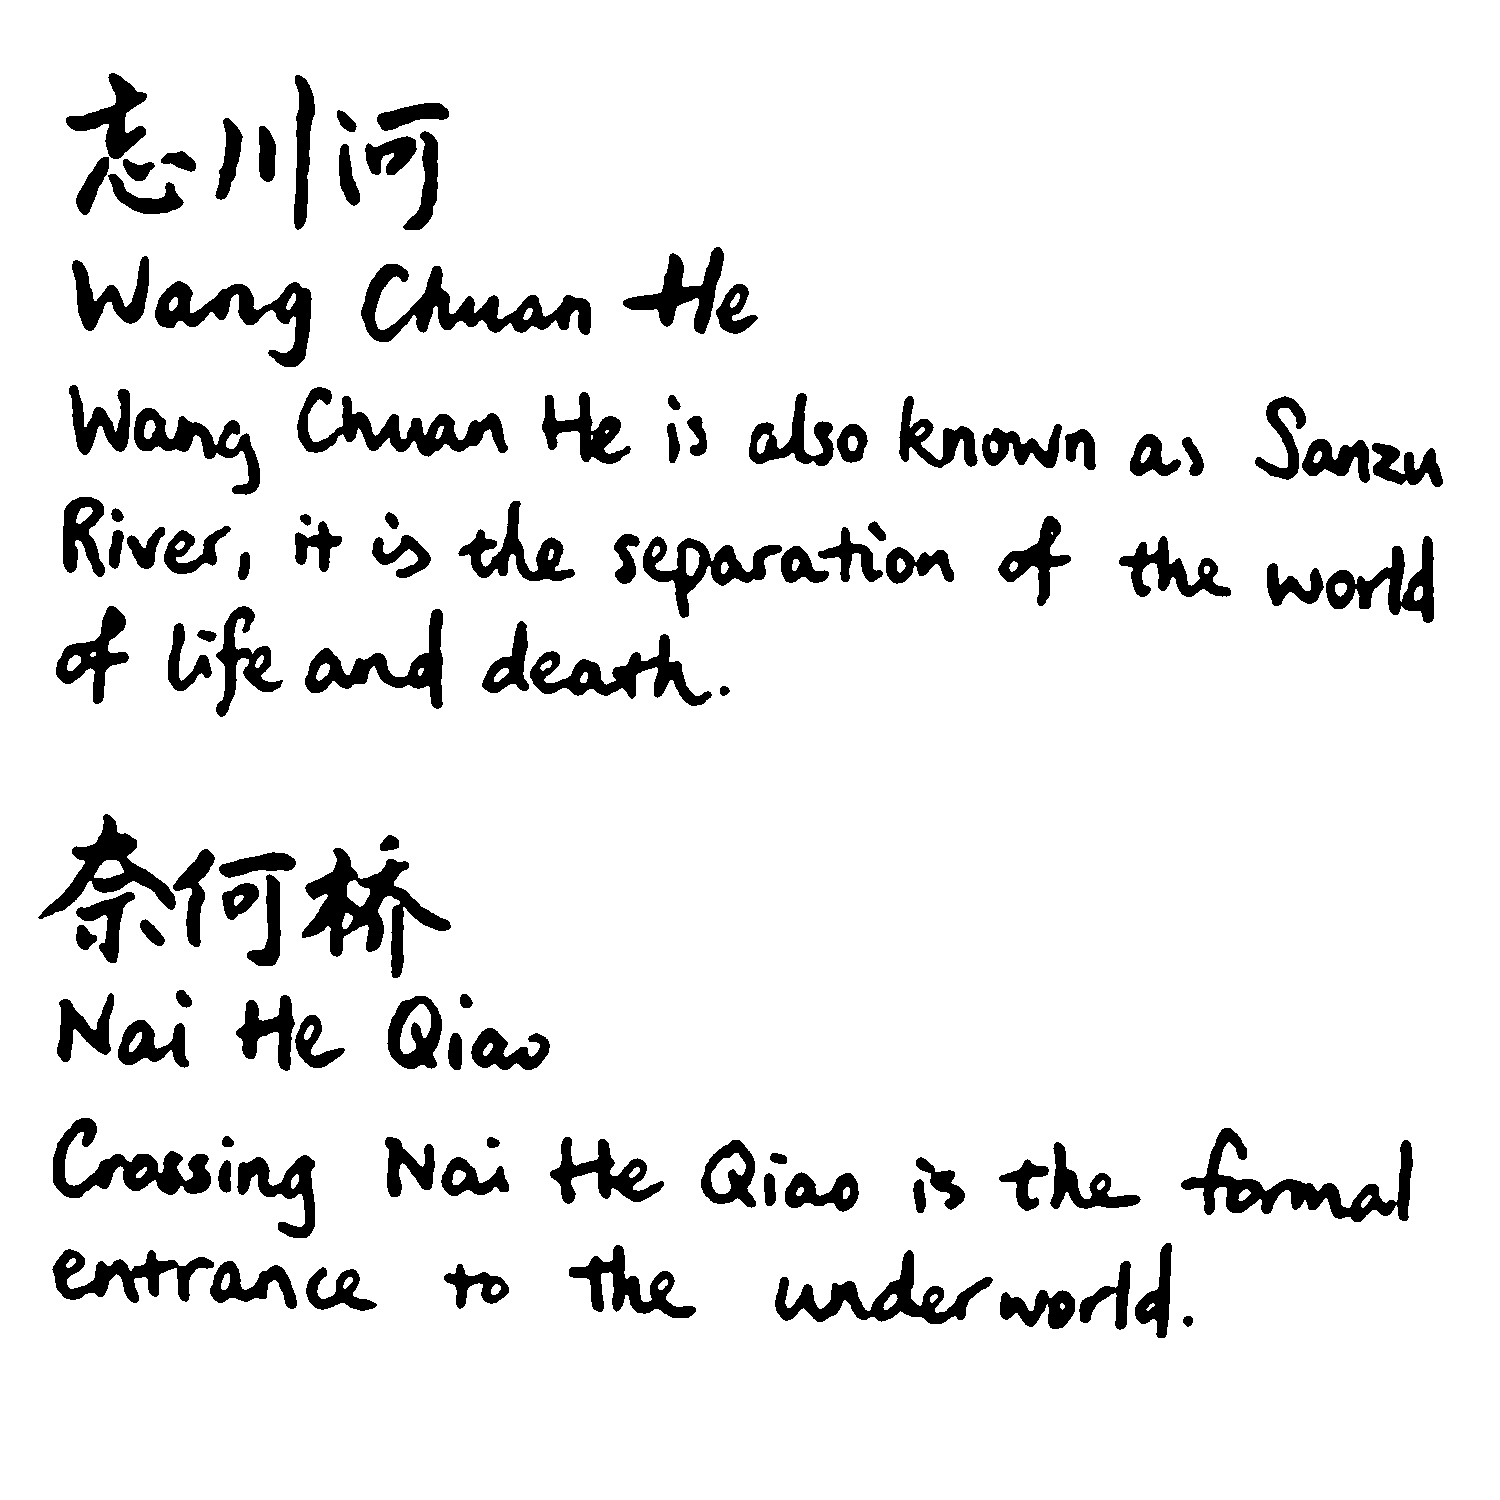 忘川河
Wang Chuan He
Wang Chuan He is also known as Sanzu
River, it is the separation of the world
of life and death.
奈何桥
Nai He Qiao
Crossing Nai He Qiao is the formal
entrance to the underworld.